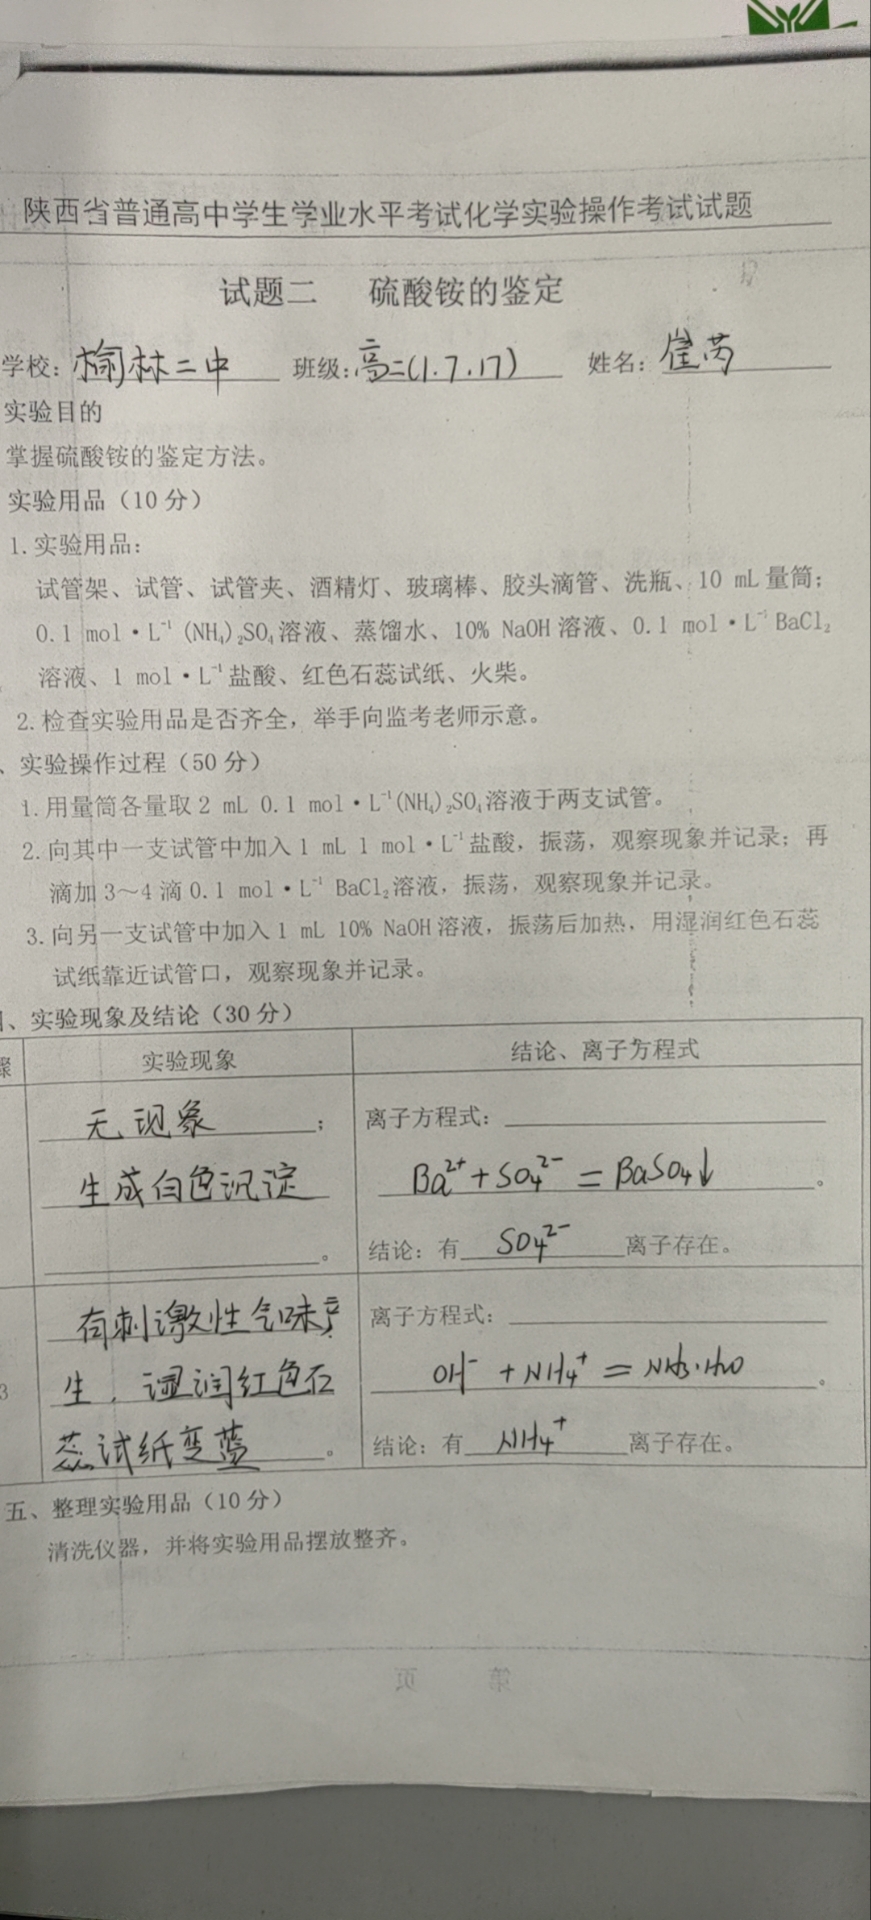 陕西省普通高中学生学业水平考试化学实验操作考试试题
试题二 硫酸铵的鉴定
学校：榆林二中 班级：高二(1.7.17) 姓名：崔芮
实验目的
掌握硫酸铵的鉴定方法。
实验用品（10 分）
1.实验用品：
试管架、试管、试管夹、酒精灯、玻璃棒、胶头滴管、洗瓶、10 mL 量筒；
0.1 mol·L⁻¹ (NH₄)₂SO₄溶液、蒸馏水、10% NaOH 溶液、0.1 mol·L⁻¹ BaCl₂
溶液、1 mol·L⁻¹盐酸、红色石蕊试纸、火柴。
2.检查实验用品是否齐全，举手向监考老师示意。
、实验操作过程（50 分）
1.用量筒各量取 2 mL 0.1 mol·L⁻¹(NH₄)₂SO₄溶液于两支试管。
2.向其中一支试管中加入 1 mL 1 mol·L⁻¹盐酸，振荡，观察现象并记录；再
滴加 3～4 滴 0.1 mol·L⁻¹ BaCl₂溶液，振荡，观察现象并记录。
3.向另一支试管中加入 1 mL 10% NaOH 溶液，振荡后加热，用湿润红色石蕊
试纸靠近试管口，观察现象并记录。
、实验现象及结论（30 分）
骤 实验现象 结论、离子方程式
无现象； 离子方程式：
生成白色沉淀 Ba²⁺+SO₄²⁻=BaSO₄↓。
。 结论：有 SO₄²⁻ 离子存在。
有刺激性气味产 离子方程式：
3 生，湿润红色石 OH⁻+NH₄⁺=NH₃·H₂O。
蕊试纸变蓝。 结论：有 NH₄⁺ 离子存在。
五、整理实验用品（10 分）
清洗仪器，并将实验用品摆放整齐。
第 页